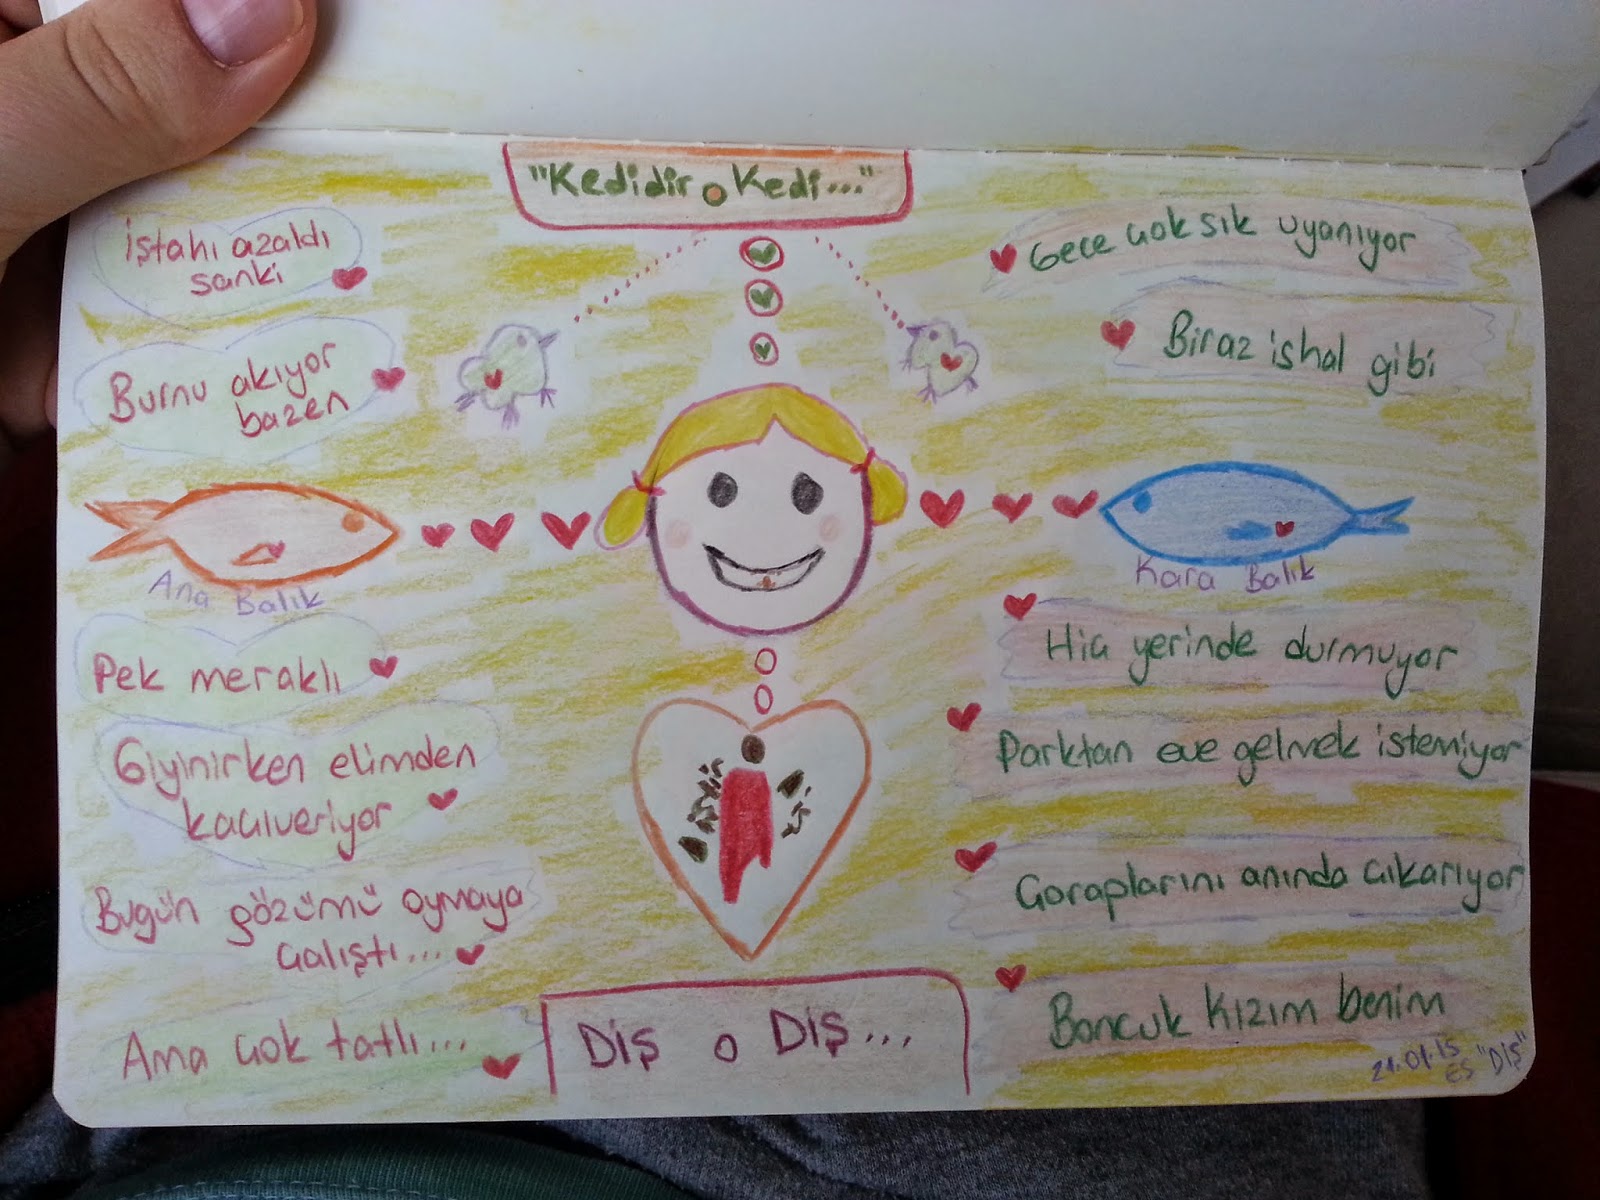 "Kedidir o Kedi..."
İştahı azaldı
sanki
Burnu akıyor
bazen
Ana Balık
Pek meraklı
Giyinirken elimden
kaçıveriyor
Bugün gözümü oymaya
çalıştı...
Ama çok tatlı...
Gece çok sık uyanıyor
Biraz ishal gibi
Kara Balık
Hiç yerinde durmuyor
Parktan eve gelmek istemiyor
Çoraplarını anında çıkarıyor
Boncuk kızım benim
DİŞ o DİŞ...
21.01.15
ES "DİŞ"